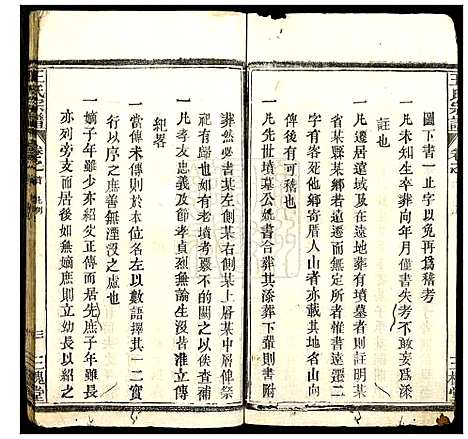 王氏宗譜
圖下書一止字以免再爲稽考
一凡生卒葬向年月僅書失考不敢妄爲添
註也
一凡遷居遠域及在遠地葬有墳墓者則註明某
省某縣某鄉若遠遷而無定所者惟書遠遷二
字有客死他鄉寄厝人山者亦載其地名山向
俾後有可稽也
一凡先世墳墓公墳書合葬其添葬下輩則書附
葬然必書某左側某右側某上層某中層俾祭掃
有歸也如有歷代老墳考覈不的則以俟查補
一凡孝友忠義及節烈貞淑無論生沒皆立傳
紀畧
一當傳未傳則於本位名左以數語擇其一二實
行以序之庶善無湮沒之虞也
一嫡子年雖少亦紹父正傳而居先庶子年雖長
亦列旁支而居後如無嫡庶則立幼長以紹之
王氏宗譜
卷之首
凡例
三
三槐堂